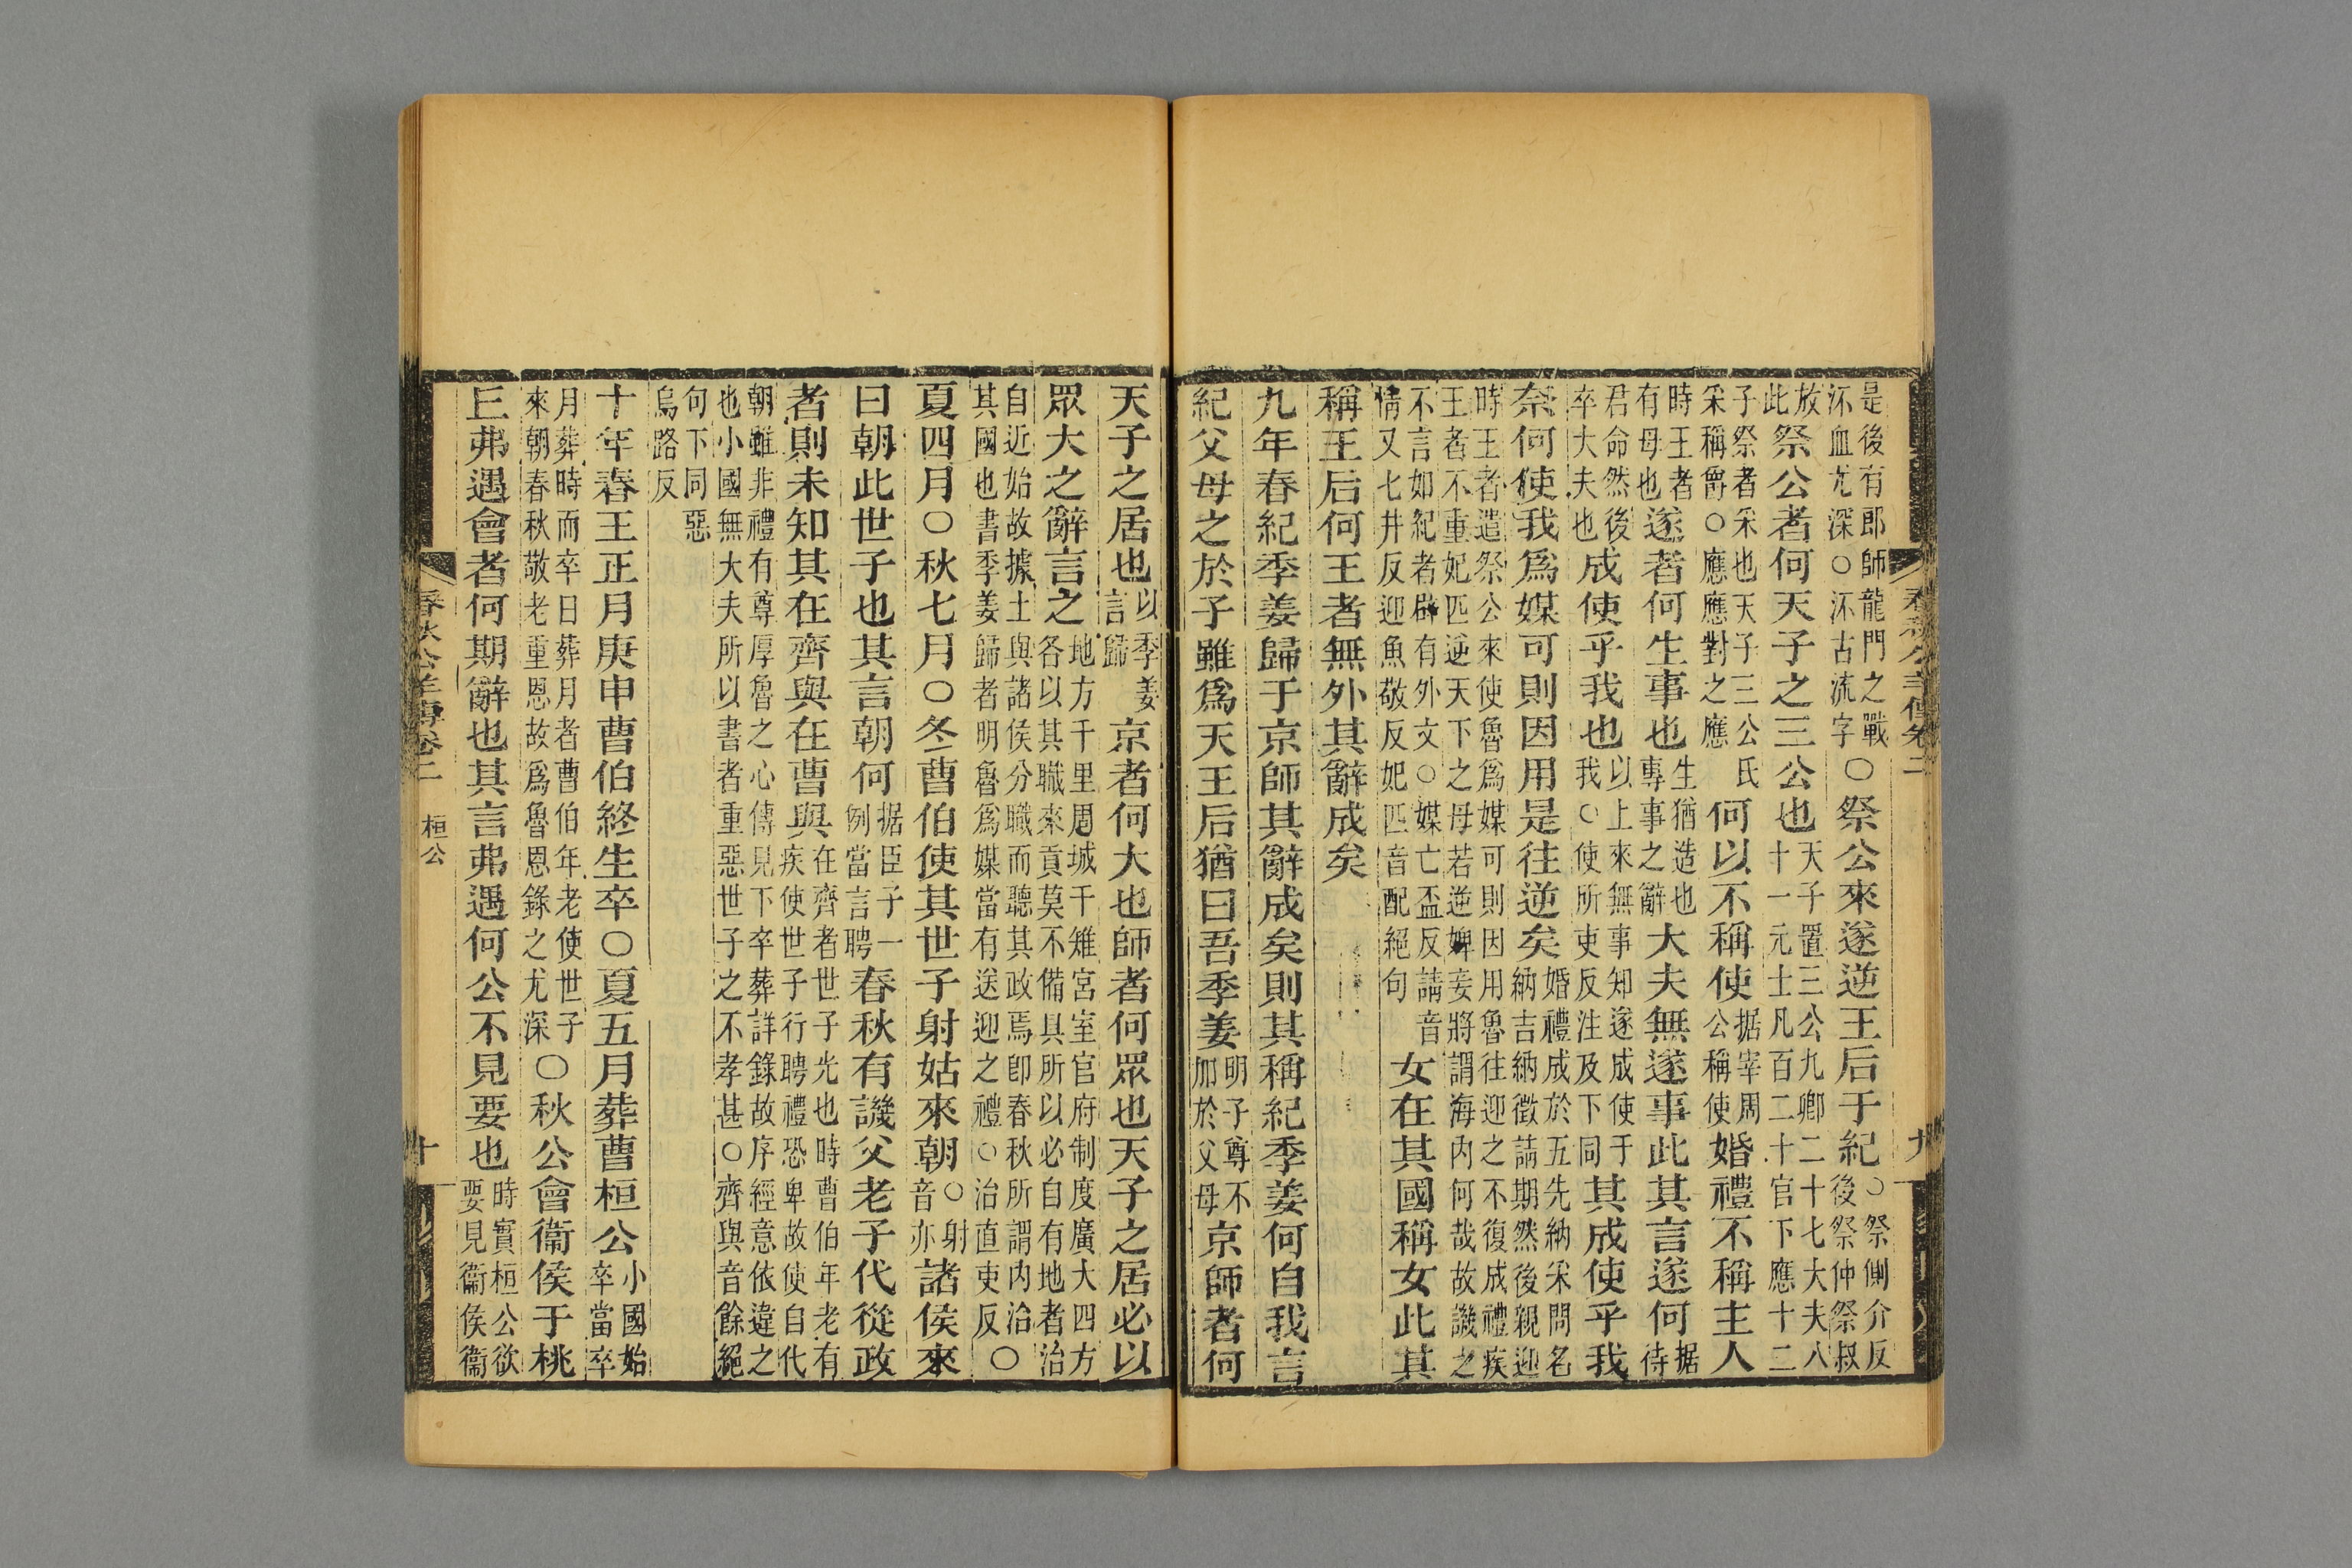 春秋公羊傳卷二 九
是後有郎師龍門之戰㳅血尤深○㳅古流字○祭公來遂逆王后于紀○祭側介反後祭仲祭叔
放此祭公者何天子之三公也天子置三公九卿二十七大夫八十一元士凡百二十官下應十二
子祭者采也天子三公氏采稱爵○應應對之應何以不稱使据宰周公稱使婚禮不稱主人
時王者有母也遂者何生事也生猶造也專事之辭大夫無遂事此其言遂何据待
君命然後卒大夫也成使乎我也以上來無事知遂成使于我○使所吏反注及下同其成使乎我
奈何使我爲媒可則因用是往逆矣婚禮成於五先納采問名納吉納徵請期然後親迎
時王者遣祭公來使魯爲媒可則因用魯往迎之不復成禮疾王者不重妃匹逆天下之母若逆婢妾將謂海内何哉故譏之
不言如紀者辟有外文○媒亡盃反請音情又七井反迎魚敬反妃匹音配絕句女在其國稱女此其
稱王后何王者無外其辭成矣
九年春紀季姜歸于京師其辭成矣則其稱紀季姜何自我言
紀父母之於子雖爲天王后猶曰吾季姜明子尊不加於父母京師者何
天子之居也以季姜言歸京者何大也師者何眾也天子之居必以
眾大之辭言之地方千里周城千雉宮室官府制度廣大四方各以其職來貢莫不備具所以必自有地者治
自近始故據土與諸侯分職而聽其政焉卽春秋所謂内治其國也書季姜歸者明魯爲媒當有送迎之禮○治直吏反○
夏四月○秋七月○冬曹伯使其世子射姑來朝○射音亦諸侯來
曰朝此世子也其言朝何据臣子一例當言聘春秋有譏父老子代從政
者則未知其在齊與在曹與在齊者世子光也時曹伯年老有疾使世子行聘禮恐卑故使自代
朝雖非禮有尊厚魯之心傳見下卒葬詳錄故序經意依違之也小國無大夫所以書者重惡世子之不孝甚○齊與音餘絕
句下同惡烏路反
十年春王正月庚申曹伯終生卒○夏五月葬曹桓公小國始卒當卒
月葬時而卒日葬月者曹伯年老使世子來朝春秋敬老重恩故爲魯恩錄之尤深○秋公會衞侯于桃
丘弗遇會者何期辭也其言弗遇何公不見要也時實桓公欲要見衞侯衞
春秋公羊傳卷二 桓公 十